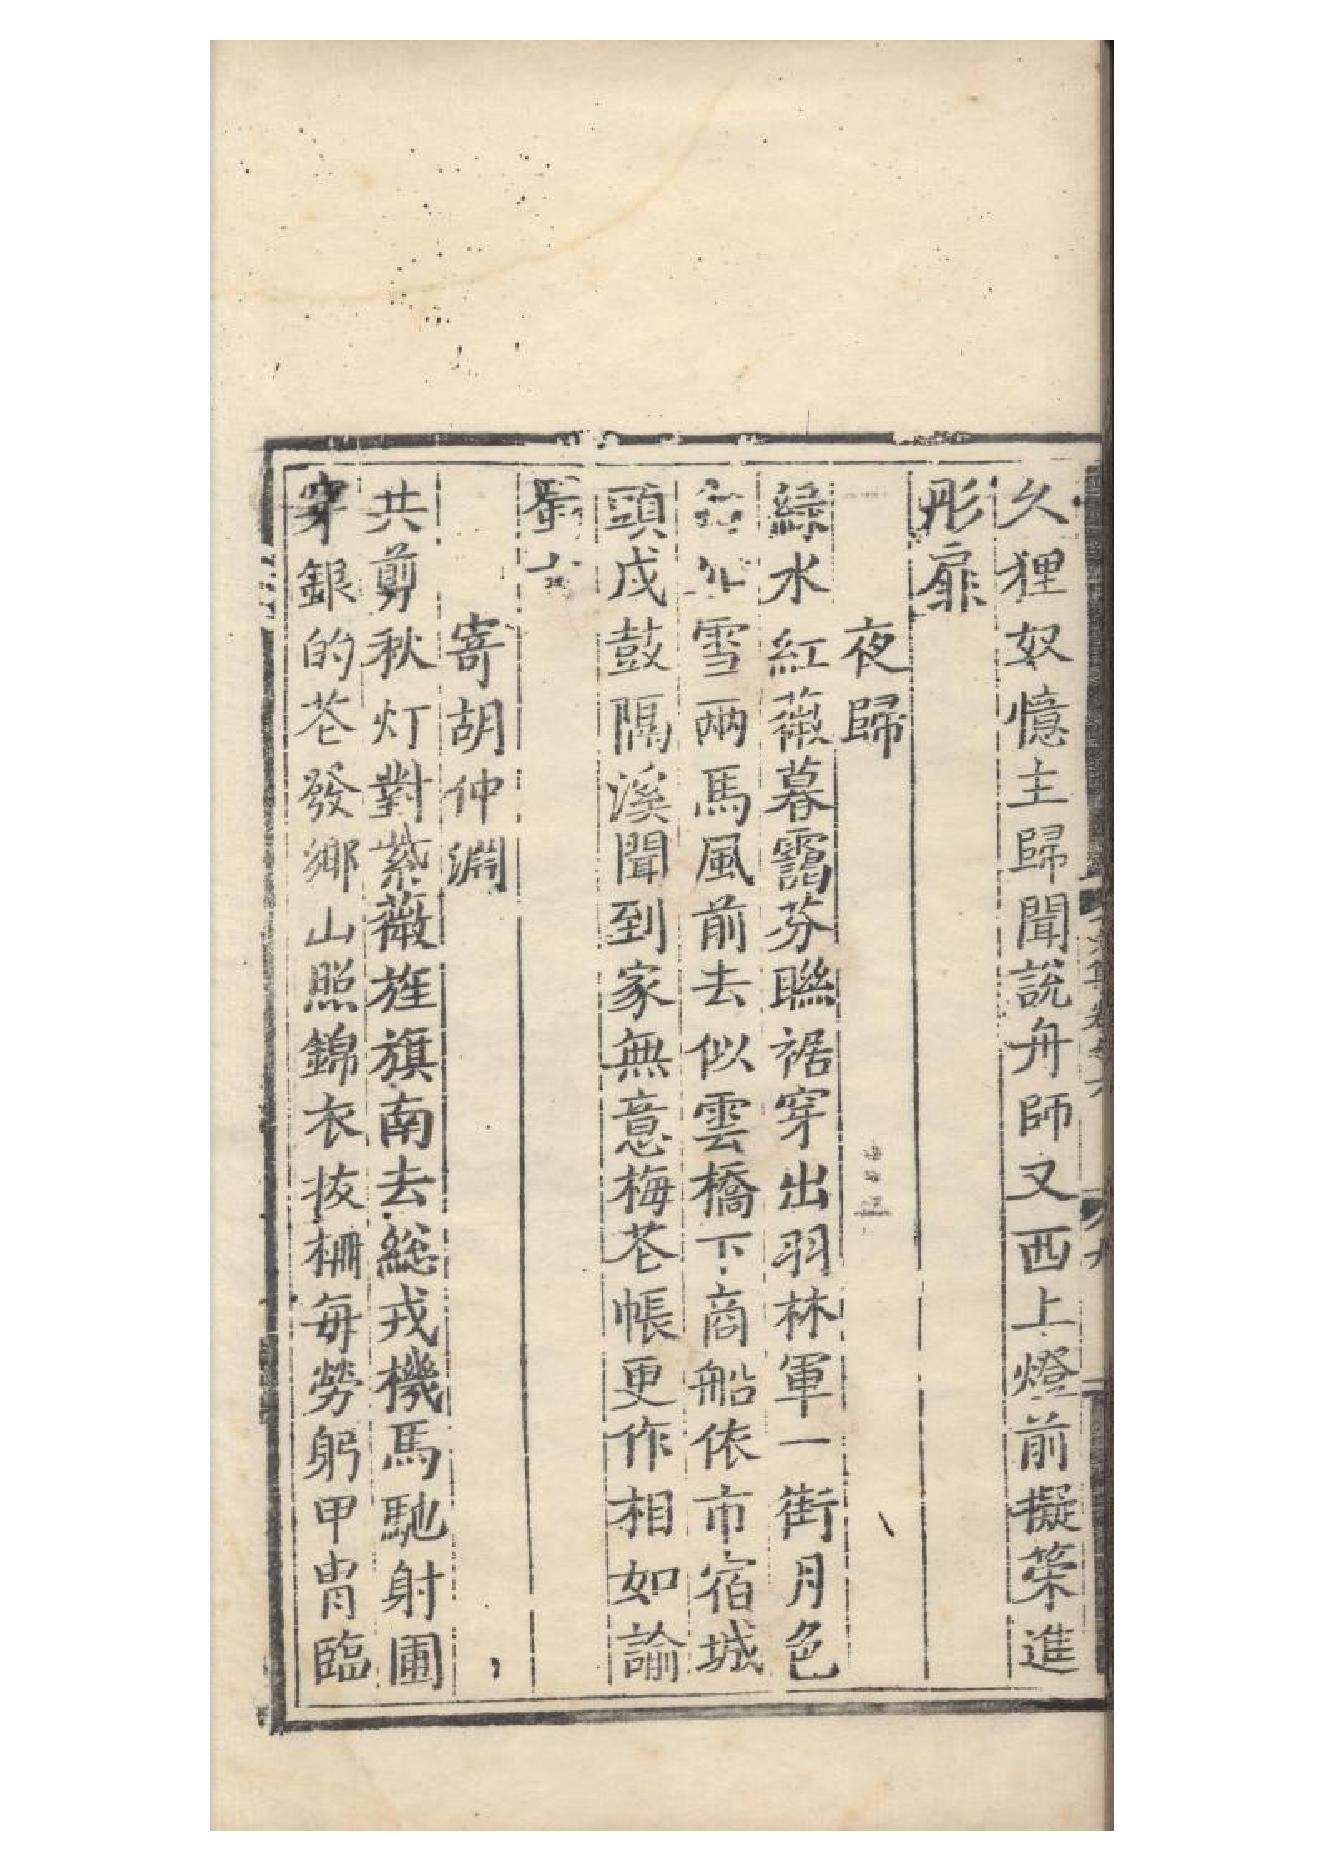 久狸奴憶主歸聞說舟師又西上燈前擬策進
彤扉
夜歸
綠水紅薇暮靄芬聯裾穿出羽林軍一街月色
雪兩馬風前去似雲橋下商船依市宿城
頭戍鼓隔溪聞到家無意梅苍帳更作相如諭
蜀文
寄胡仲淵
共剪秋灯對紫薇旌旗南去総戎機馬馳射圃
穿銀的苍發鄉山照錦衣拔柵每勞躬甲冑臨